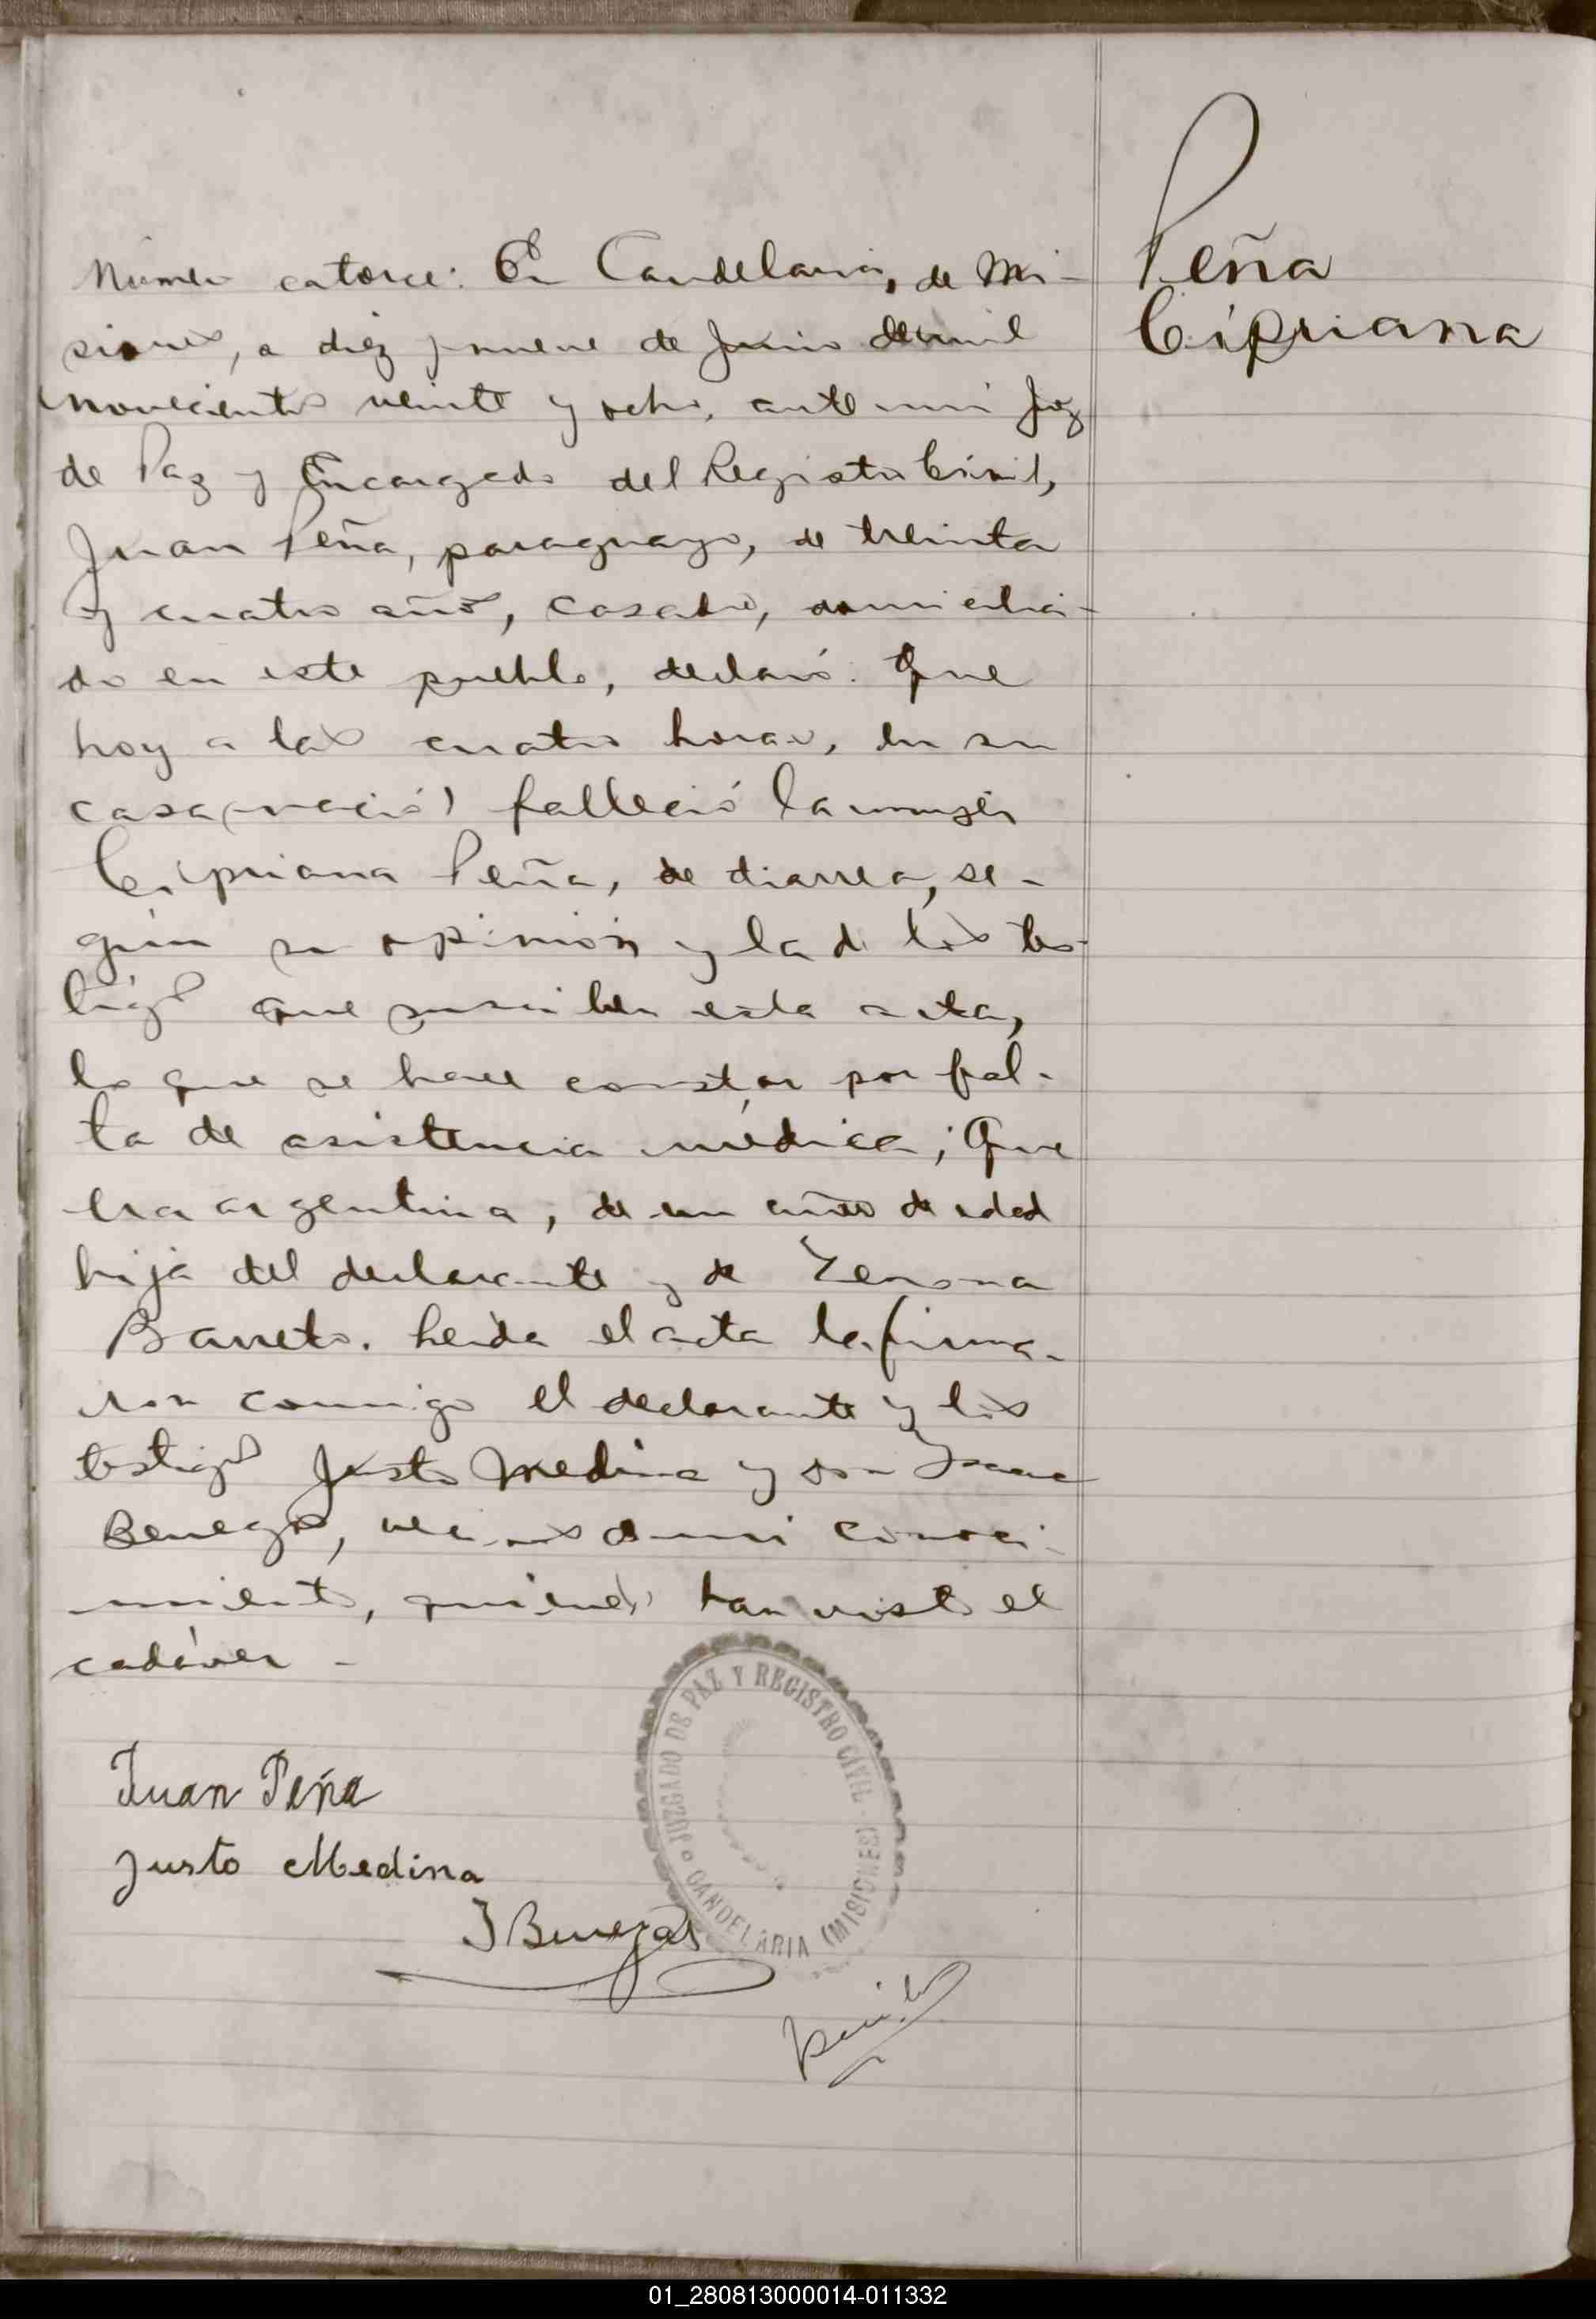 Peña
Cipriana
Número catorce: En Candelaria, de Mi-
siones, a diez y nueve de Junio de mil
novecientos veinte y ocho, ante mi Juez
de Paz y Encargado del Registro Civil,
Juan Peña, paraguayo, de treinta
y cuatro años, casado, domicilia-
do en este pueblo, declaró: Que
hoy a las cuatro horas, en su
casa (nació) falleció la mujer
Cipriana Peña, de diarrea, se-
gún su opinión y la de los tes-
tigos que suscriben esta acta,
lo que se hace constar por fal-
ta de asistencia médica; Que
era argentina, de un año de edad
hija del declarante y de Zenona
Barreto. Leída el acta la firma-
ron conmigo el declarante y los
testigos Justo Medina y don Isaac
Benegas, vecinos de mi conoci-
miento, quienes han visto el
cadáver -
Juan Peña
Justo Medina
I Benegas
JUZGADO DE PAZ Y REGISTRO CIVIL
CANDELARIA (MISIONES)
01_280813000014-011332